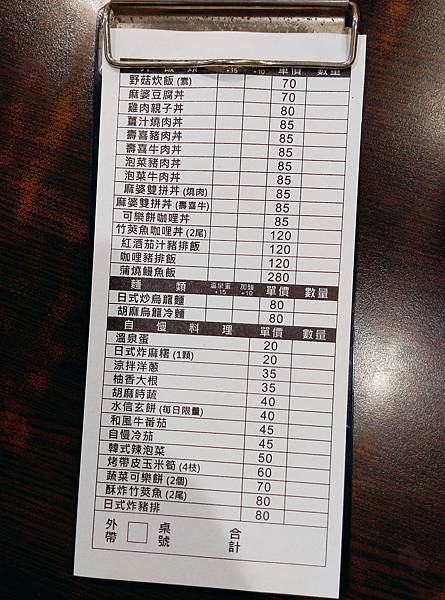 飯 類 +15 +10 單價 數量
野菇炊飯 (素) 70
麻婆豆腐丼 70
雞肉親子丼 80
薑汁燒肉丼 85
壽喜豬肉丼 85
壽喜牛肉丼 85
泡菜豬肉丼 85
泡菜牛肉丼 85
麻婆雙拼丼 (燒肉) 85
麻婆雙拼丼 (壽喜牛) 85
可樂餅咖哩丼 85
竹莢魚咖哩丼 (2尾) 120
紅酒茄汁豬排飯 120
咖哩豬排飯 120
蒲燒鰻魚飯 280
麵 類 溫泉蛋 +15 加麵 +10 單價 數量
日式炒烏龍麵 80
胡麻烏龍冷麵 80
自 慢 料 理 單價 數量
溫泉蛋 20
日式炸麻糬 (1顆) 20
涼拌洋蔥 35
柚香大根 35
胡麻時蔬 40
水信玄餅 (每日限量) 40
和風牛番茄 45
自慢冷茄 45
韓式辣泡菜 50
烤帶皮玉米筍 (4枝) 60
蔬菜可樂餅 (2個) 70
酥炸竹莢魚 (2尾) 80
日式炸豬排 80
外帶 桌號 合計